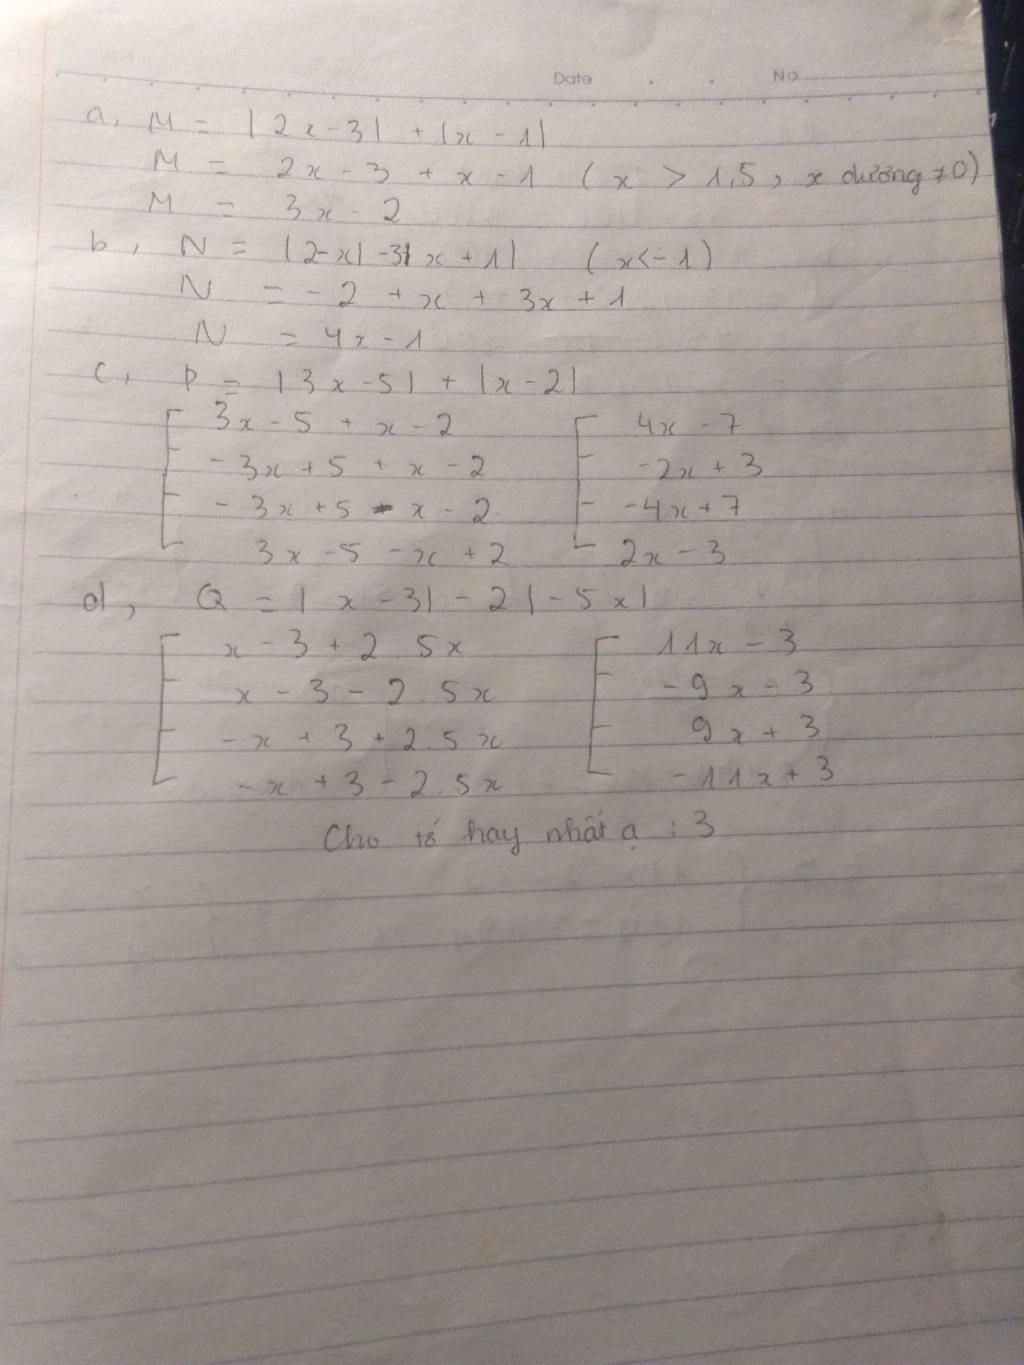 Date No.
a, M = |2x-3| + |x-1|
M = 2x-3 + x-1 (x > 1,5, x dương ≠0)
M = 3x-2
b, N = |2-x| -3|x+1| (x<-1)
N = -2 + x + 3x + 1
N = 4x-1
c, P = |3x-5| + |x-2|
3x-5 + x-2 4x-7
-3x+5 + x-2 -2x+3
-3x+5 - x-2 -4x+7
3x-5 -x+2 2x-3
d, Q = |x-3| - 2|-5x|
x-3+2.5x 11x-3
x-3-2.5x -9x-3
-x+3+2.5x 9x+3
-x+3-2.5x -11x+3
Cho tớ hay nhất ạ :3